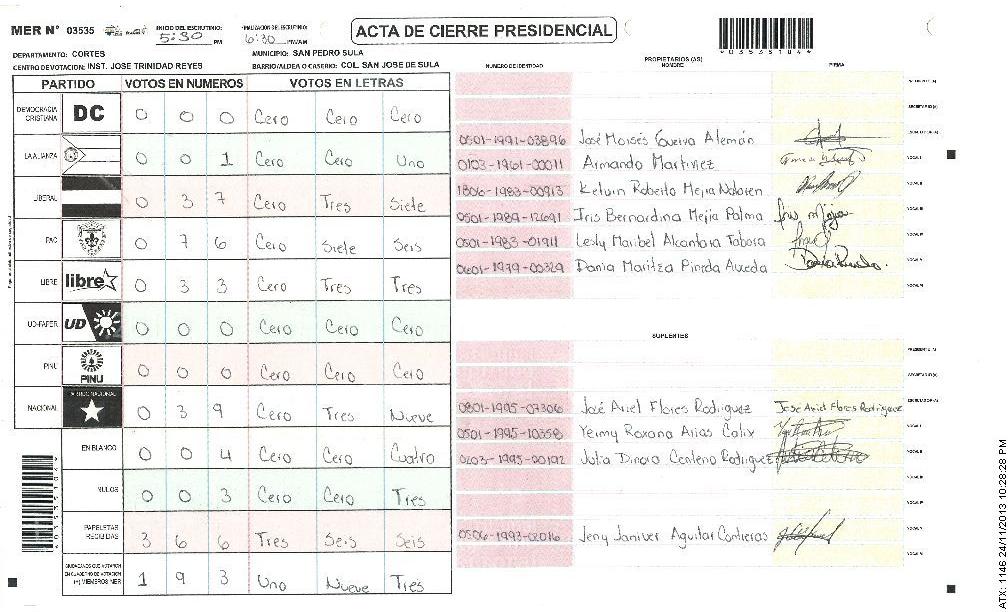 MER Nº 03535
INICIO DEL ESCRUTINIO: 5:30 PM
FINALIZACION DEL ESCRUTINIO: 6:30 PM/AM
ACTA DE CIERRE PRESIDENCIAL
DEPARTAMENTO: CORTES
MUNICIPIO: SAN PEDRO SULA
CENTRO DE VOTACION: INST. JOSE TRINIDAD REYES
BARRIO/ALDEA O CASERIO: COL. SAN JOSE DE SULA
PARTIDO VOTOS EN NUMEROS VOTOS EN LETRAS
DEMOCRACIA CRISTIANA DC 0 0 0 Cero Cero Cero
LA ALIANZA 0 0 1 Cero Cero Uno
LIBERAL 0 3 7 Cero Tres Siete
PAC 0 7 6 Cero Siete Seis
LIBRE libre 0 3 3 Cero Tres Tres
UD-FAPER UD 0 0 0 Cero Cero Cero
PINU PINU 0 0 0 Cero Cero Cero
NACIONAL PARTIDO NACIONAL 0 3 9 Cero Tres Nueve
EN BLANCO 0 0 4 Cero Cero Cuatro
NULOS 0 0 3 Cero Cero Tres
PAPELETAS RECIBIDAS 3 6 6 Tres Seis Seis
CIUDADANOS QUE VOTARON EN CUADERNO DE VOTACION (+) MIEMBROS MER 1 9 3 Uno Nueve Tres
NUMERO DE IDENTIDAD
PROPIETARIOS (AS)
NOMBRE
FIRMA
0501-1991-03896 José Moisés Gueiva Alemán
0103-1961-00011 Armando Martinez
1806-1983-00913 Kelvin Roberto Mejia
0501-1989-12691 Iris Bernardina Mejia Palma Iris Mejia
0501-1983-01911 Lesly Maribel Alcantara Tabora
0601-1979-00329 Dania Maritza Pineda
SUPLENTES
0801-1995-07306 José Ariel Flores Rodriguez Jose Ariel Flores Rodriguez
0501-1995-10358 Yeimy Roxana Arias Calix
0203-1995-00192 Julia Dinora Centeno Rodriguez
0506-1993-02016 Jeny Janiver Aguilar Contreras
ATX: 1146 24/11/2013 10:28:28 PM